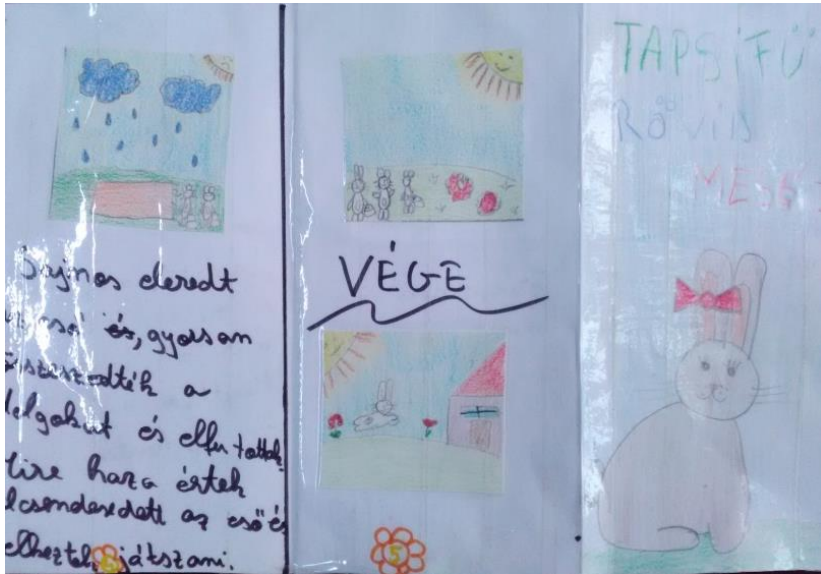 Sajnos eleredt
az eső és, gyorsan
összeszedték a
dolgokat és elfutottak.
Mire haza értek
lcsendesedett az eső és
elkeztek játszani.
5
VÉGE
5
TAPSIFÜ
RÖVID
MESÉ